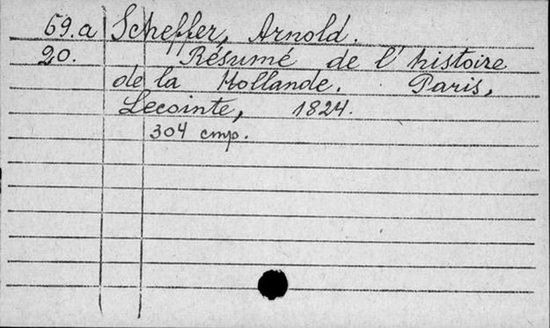 69.a Scheffer, Arnold.
20. Résumé de l'histoire
de la Hollande. Paris,
Lecointe, 1824.
304 cmp.